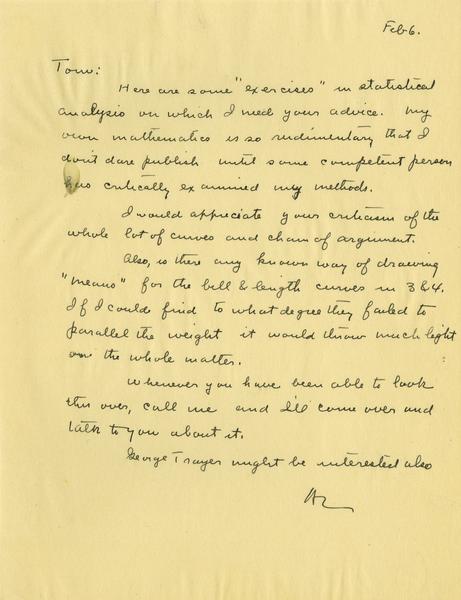 Feb 6.
Tom:
Here are some "exercises" in statistical
analysis on which I need your advice. My
own mathematics is so rudimentary that I
don't dare publish until some competent person
has critically examined my methods.
I would appreciate your criticism of the
whole lot of curves and chain of argument.
Also, is there any known way of drawing
"means" for the bill & length curves in 3 & 4.
If I could find to what degree they failed to
parallel the weight it would throw much light
on the whole matter.
Whenever you have been able to look
this over, call me and I'll come over and
talk to you about it.
George Trayer might be interested also